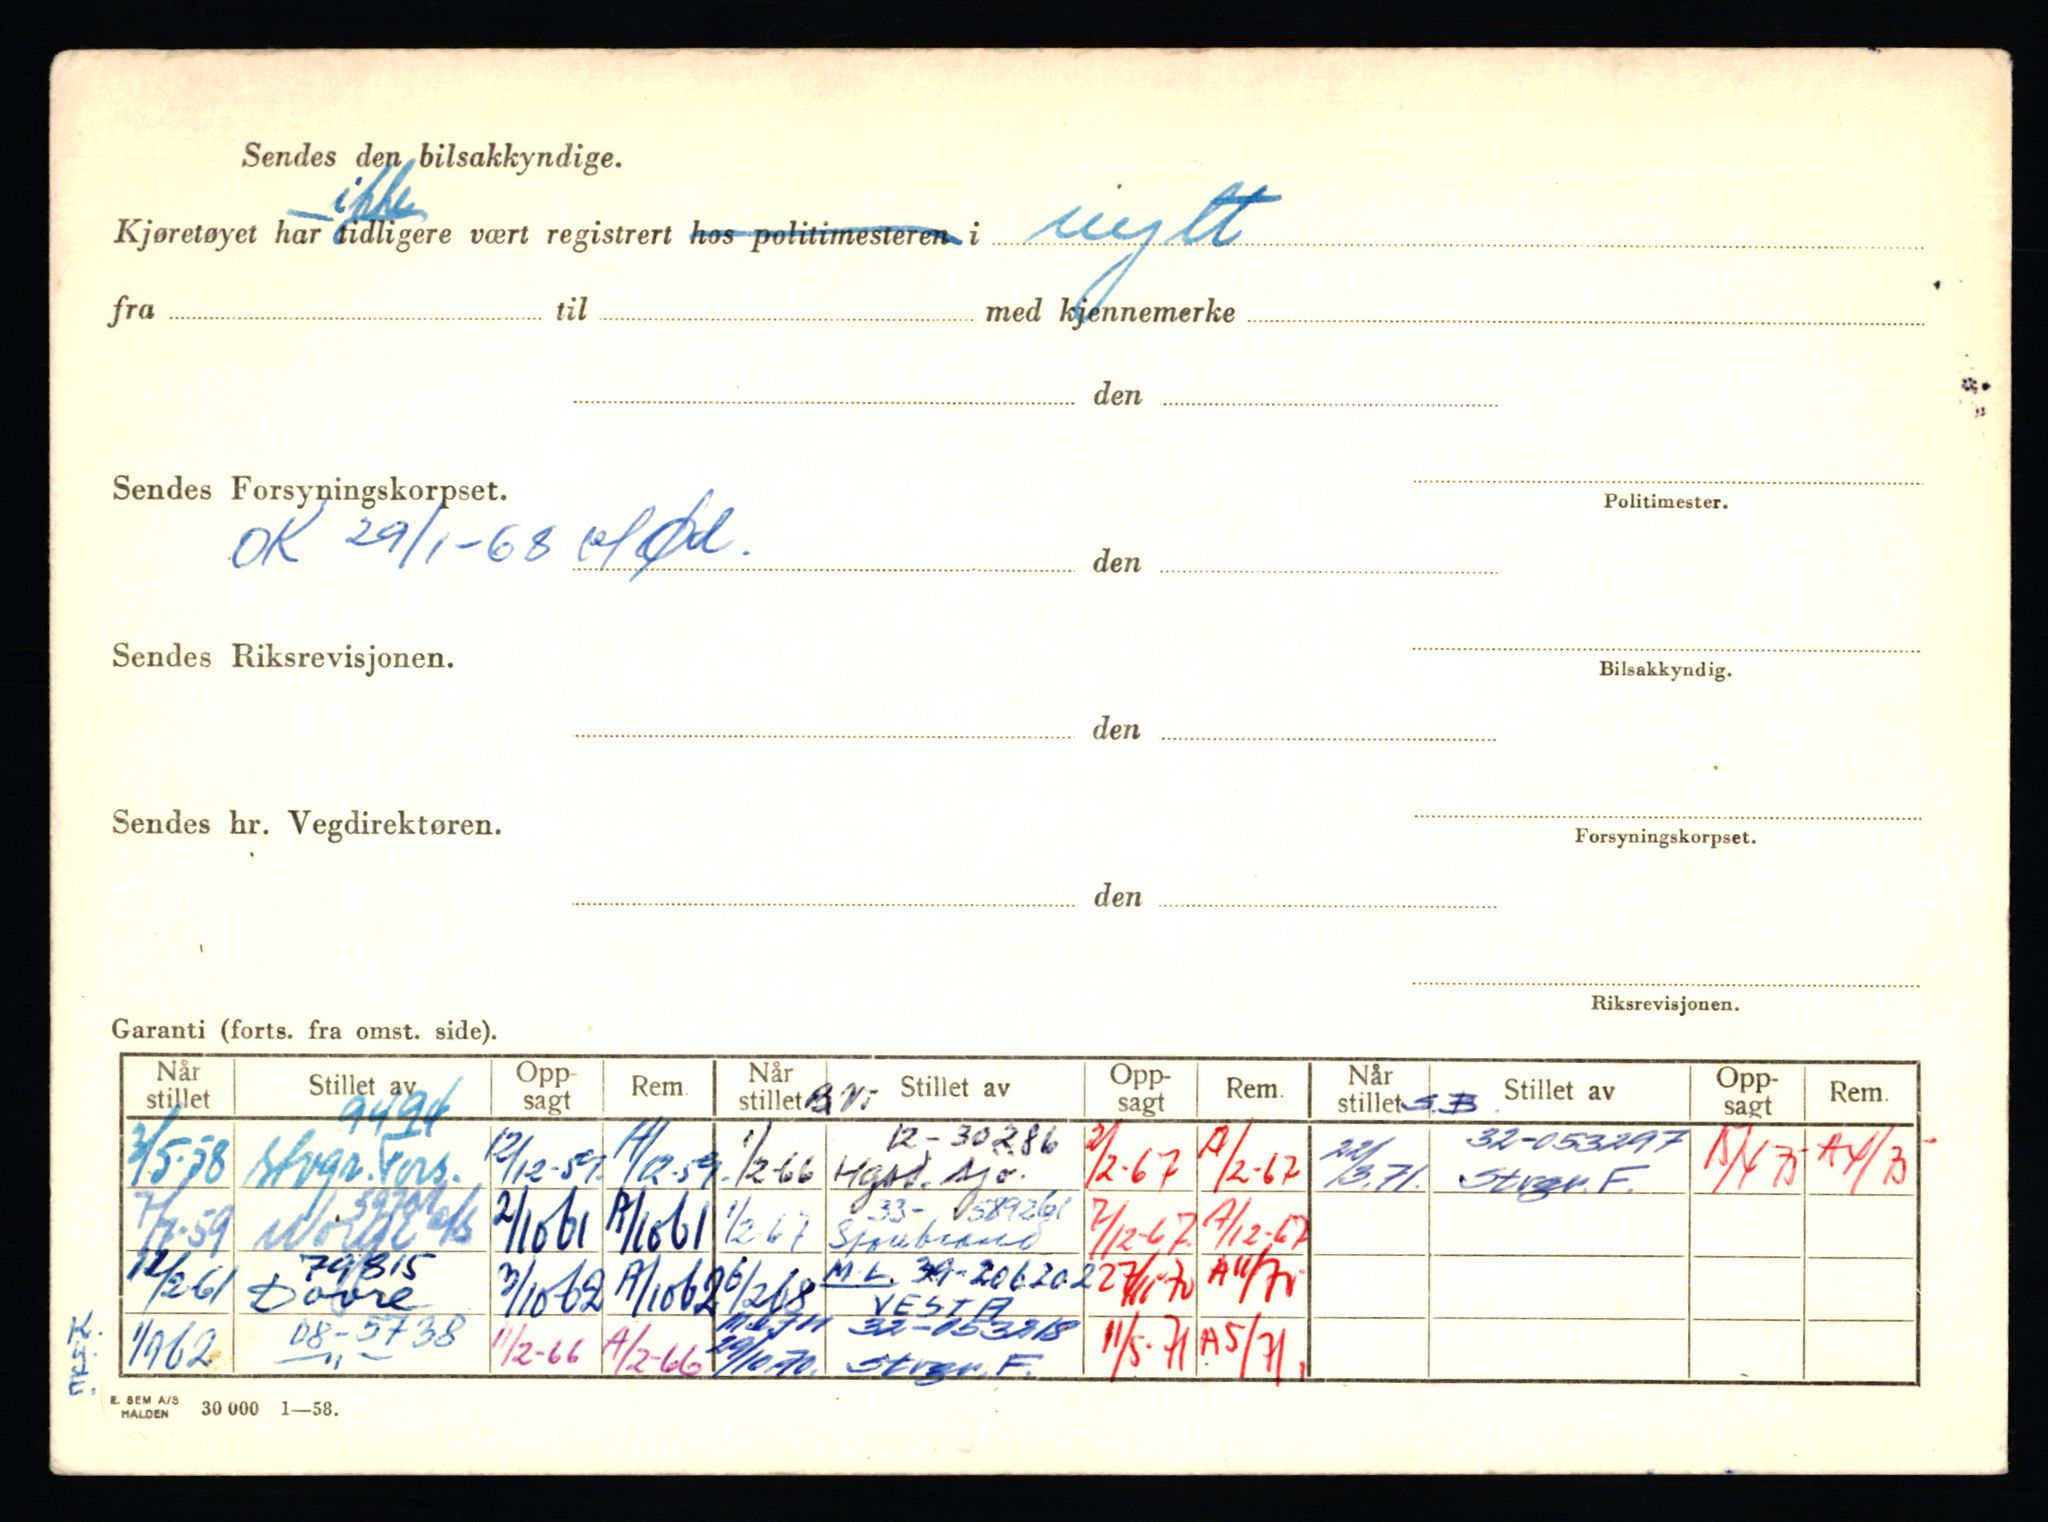 Sendes den bilsakkyndige.
ikke
Kjøretøyet har tidligere vært registrert hos politimesteren i nytt
fra til med kjennemerke
den
Politimester.
Sendes Forsyningskorpset.
OK 29/1-68
den
Bilsakkyndig.
Sendes Riksrevisjonen.
den
Forsyningskorpset.
Sendes hr. Vegdirektøren.
den
Riksrevisjonen.
Garanti (forts. fra omst. side).
Når stillet Stillet av Opp- sagt Rem. Når stillet Stillet av Opp- sagt Rem. Når stillet S.B. Stillet av Opp- sagt Rem.
9494 12-30286 32-053297
3/5-58 Stvgr. Fors. 12/12-59. A/12-59. 1/2-66 Hgsd. Sjø. 2/2-67 A/2-67 22/3.71. Stvgr. F. A4/75
33-589261
7/7-59 Norge 2/10 61 A/10 61 1/2-67 Storebrand 7/12-67 A/12-67
79815 M.L. 39-206202
12/2-61 Dovre 3/10 62 A/10 62 6/2 68 VESTA 27/11-70 A11/70
08-5738 32-053218
1/9 62 —„— 11/2-66 A/2-66 29/10.70. Stvgr. F. 11/5-71 A5/71.
E. SEM A/S
HALDEN 30 000 1—58.